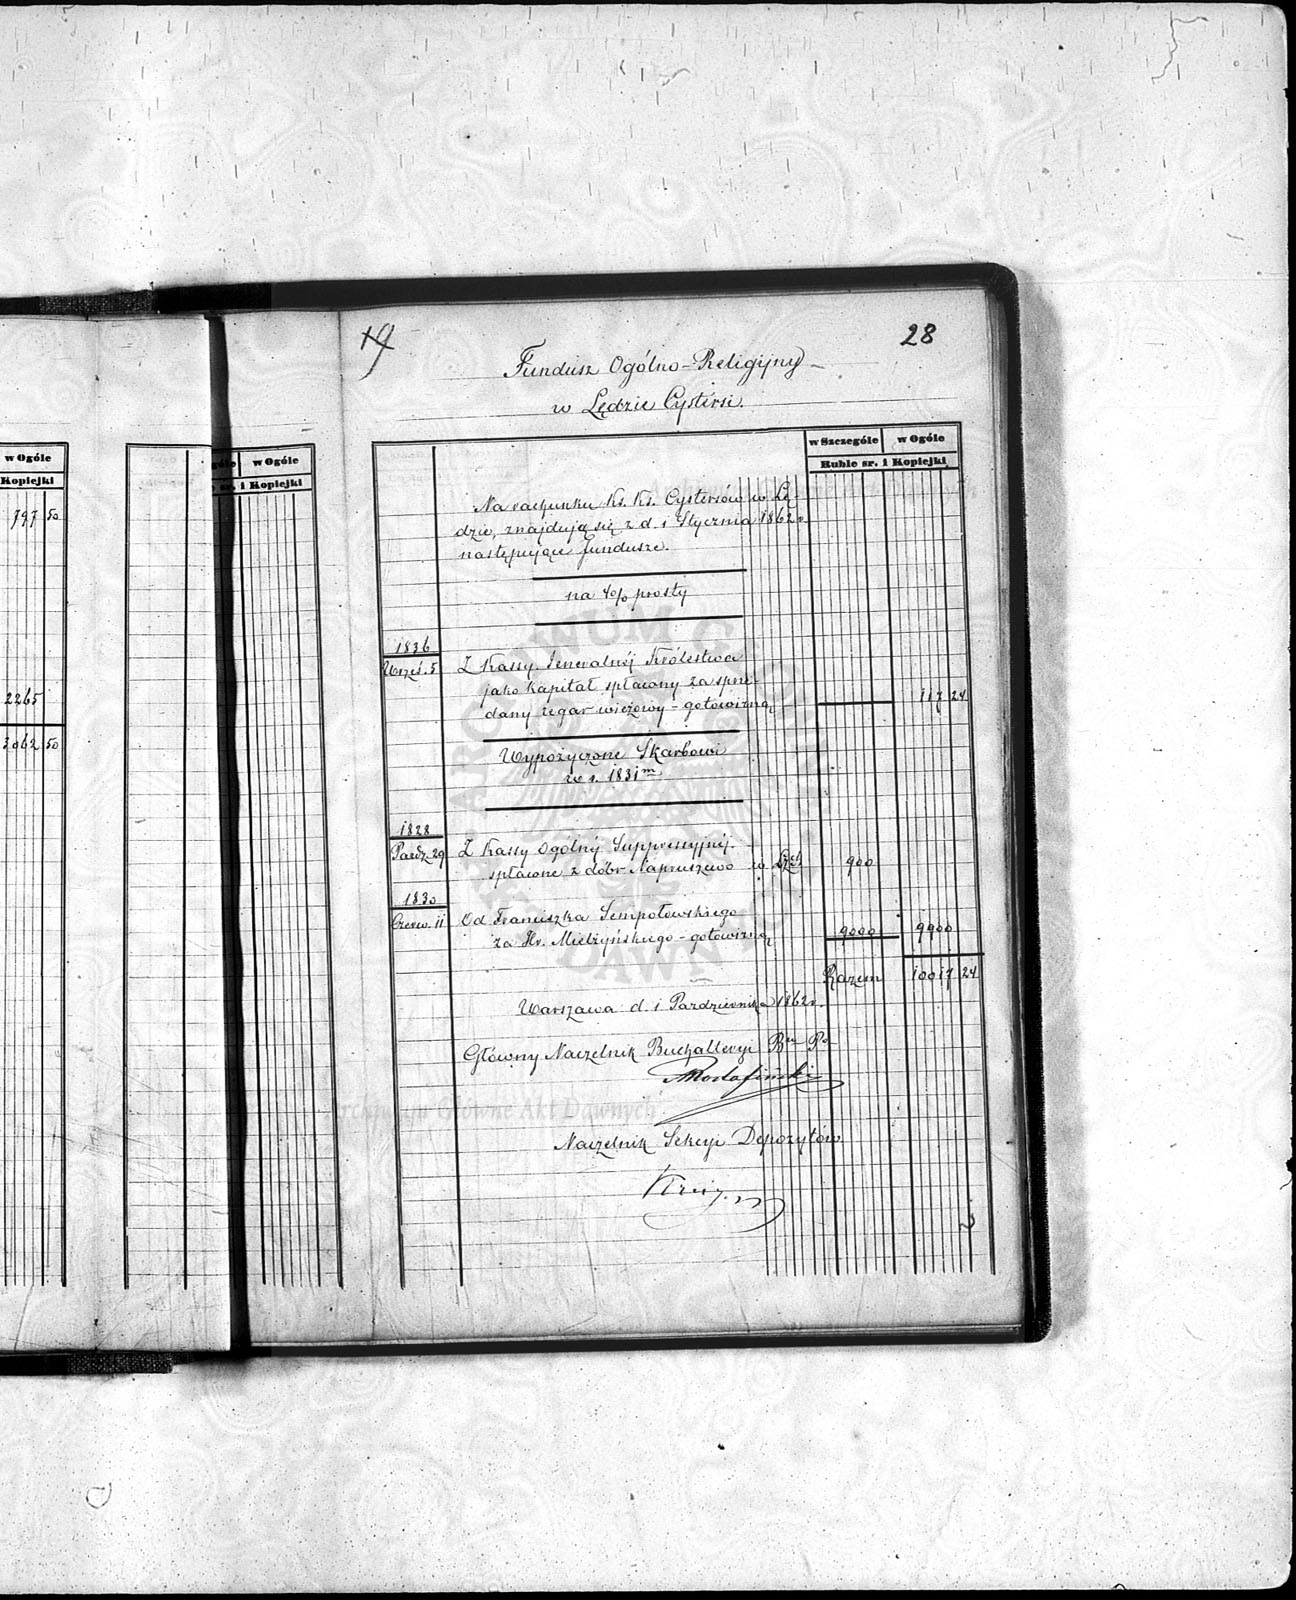 w Ogóle
Kopiejki
797 50
2265
3062 50
w Ogóle
sr. i Kopiejki
19
28
Fundusz Ogólno-Religijny
w Lędzie Cystersi.
w Szczególe
w Ogóle
Ruble sr. i Kopiejki
Na rachunku Ks. Ks. Cystersów w Lę-
dzie, znajdują się z d. 1 Stycznia 1862 r.
następujące fundusze.
na 4% prosty
1836
Wrześ. 5
Z Kassy Jeneralnéj Królestwa
jako kapitał spłacony za sprze-
dany zegar wieżowy - gotowizną
117 24
Wypożyczone Skarbowi
w r. 1831m
1828
Paźdz. 29
Z Kassy Ogólnéj Suppressyjnéj
spłacone z dóbr Napruszewo w
900
1830
Czerw. 11
Od Franciszka Sempołowskiego
za Hr. Mielżyńskiego - gotowizną
9000
9900
Razem
10017 24
Warszawa d. 1 Pazdziernika 1862 r.
Główny Naczelnik Buchalteryi
Naczelnik Sekcyi Depozytów
ARCHIWUM GŁÓWNE AKT DAWNYCH
Archiwum Główne Akt Dawnych